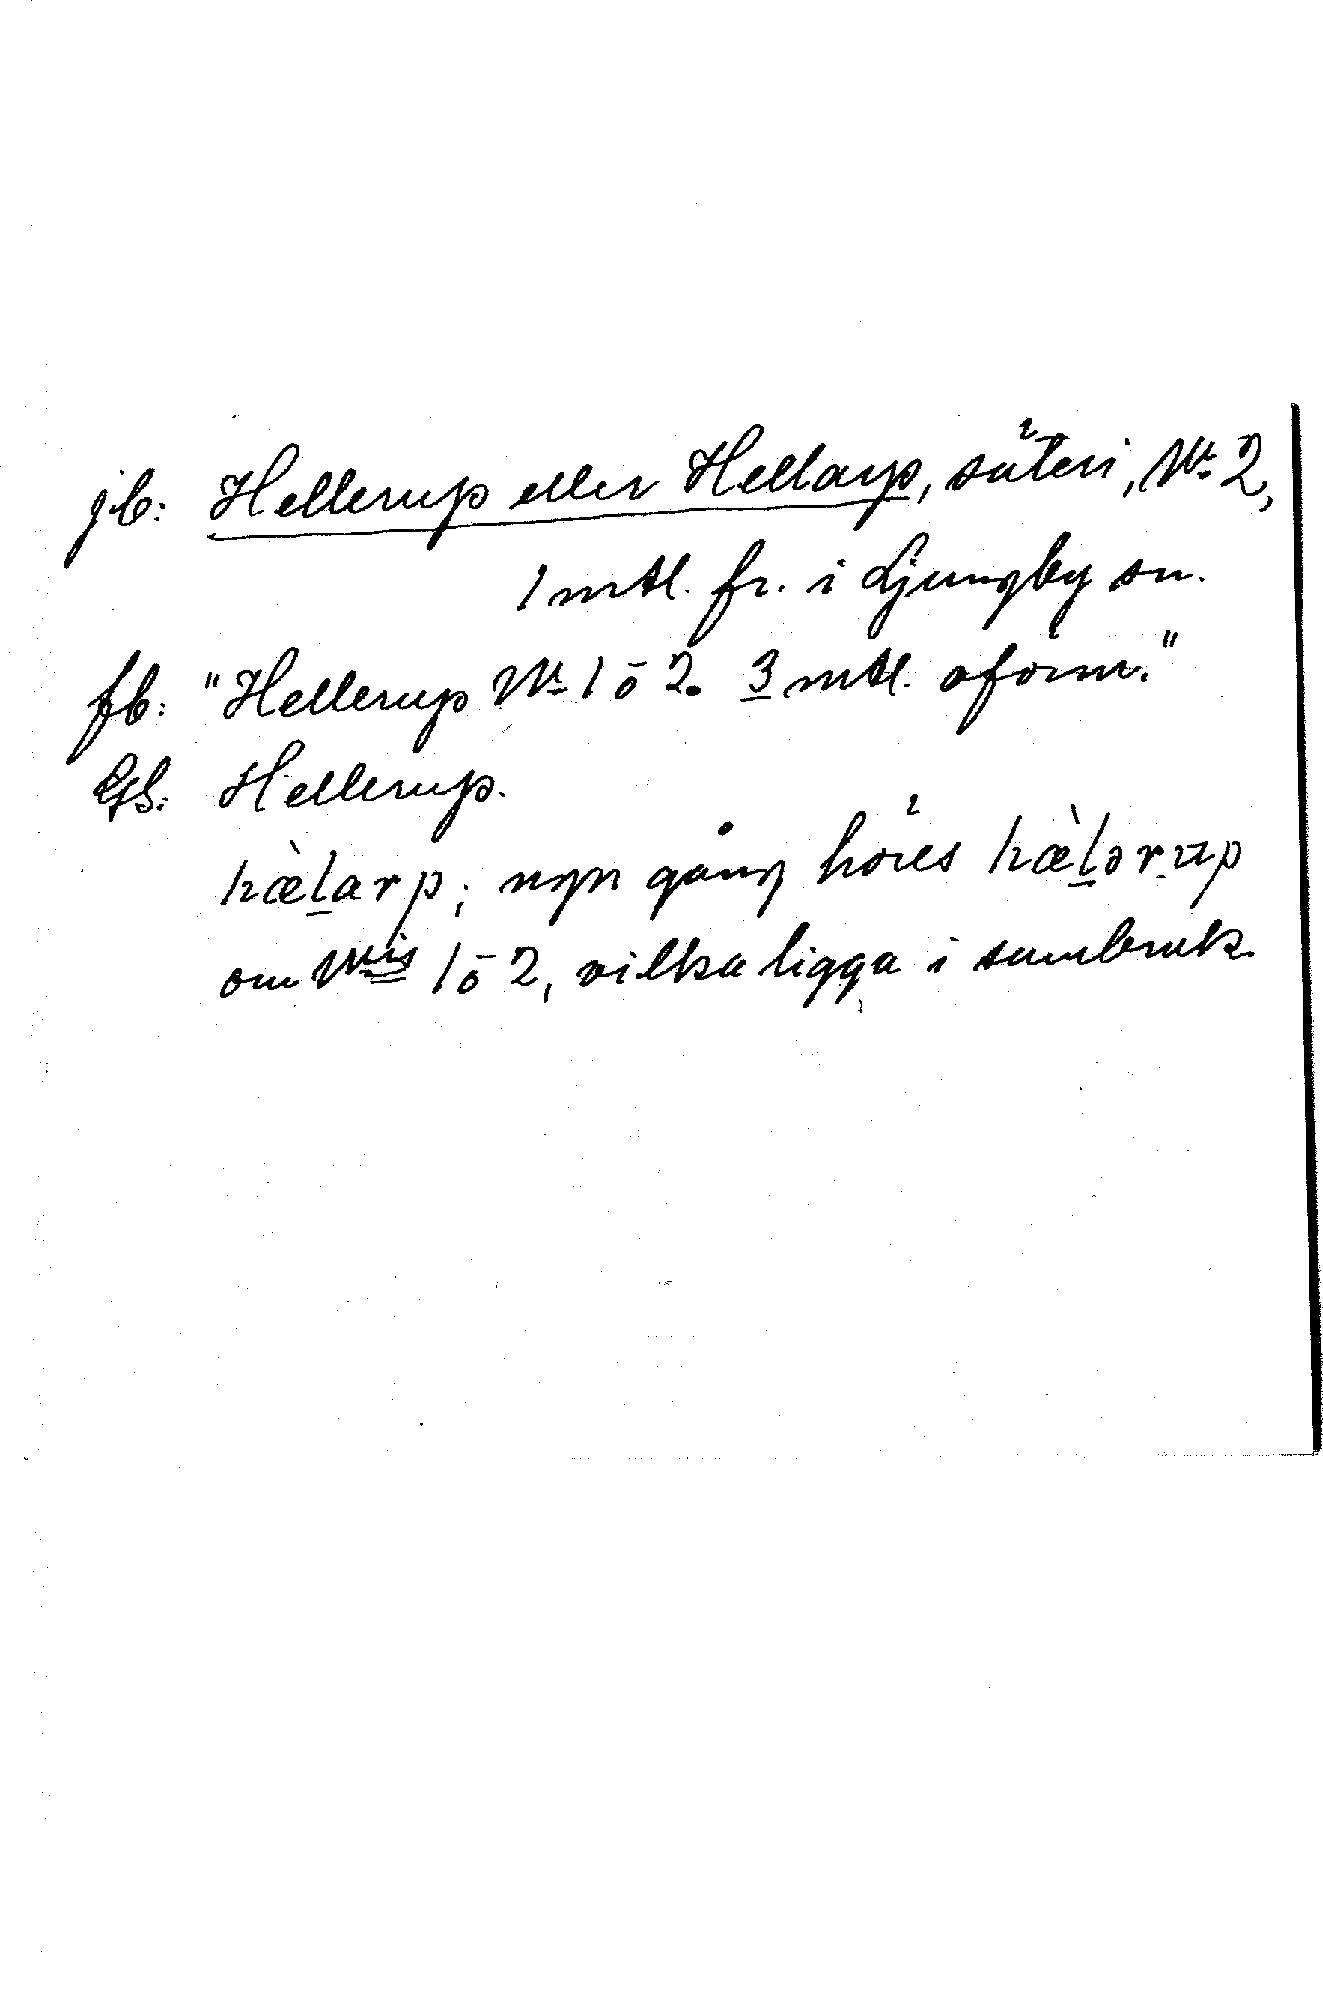 jb: Hellerup eller Hellarp, säteri, Nr 2,
1 mtl. fr. i Ljungby sn.
fb: "Hellerup Nr 1 o 2. 3 mtl. oförm."
Gs: Hellerup.
hæ̀l̠arp; ngn gång höres hæ̀l̠ərup
om Nris 1 o 2, vilka ligga i sambruk.